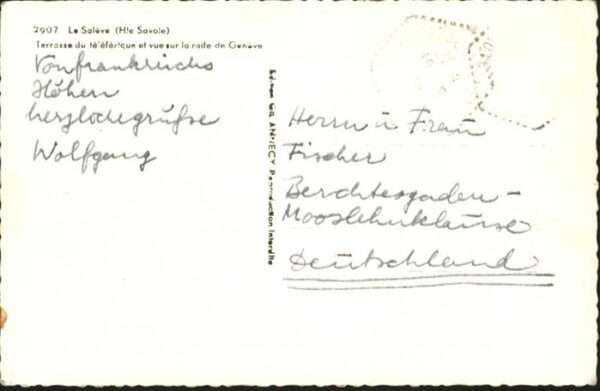 2907 Le Salève (Hte Savoie)
Terrasse du téléférique et vue sur la rade de Genève
Von frankreichs
Höhen
herzliche grüße
Wolfgang
ANNECY Reproduction Interdite
Herrn u Frau
Fischer
Berchtesgaden -
Mooslehnklause
Deutschland